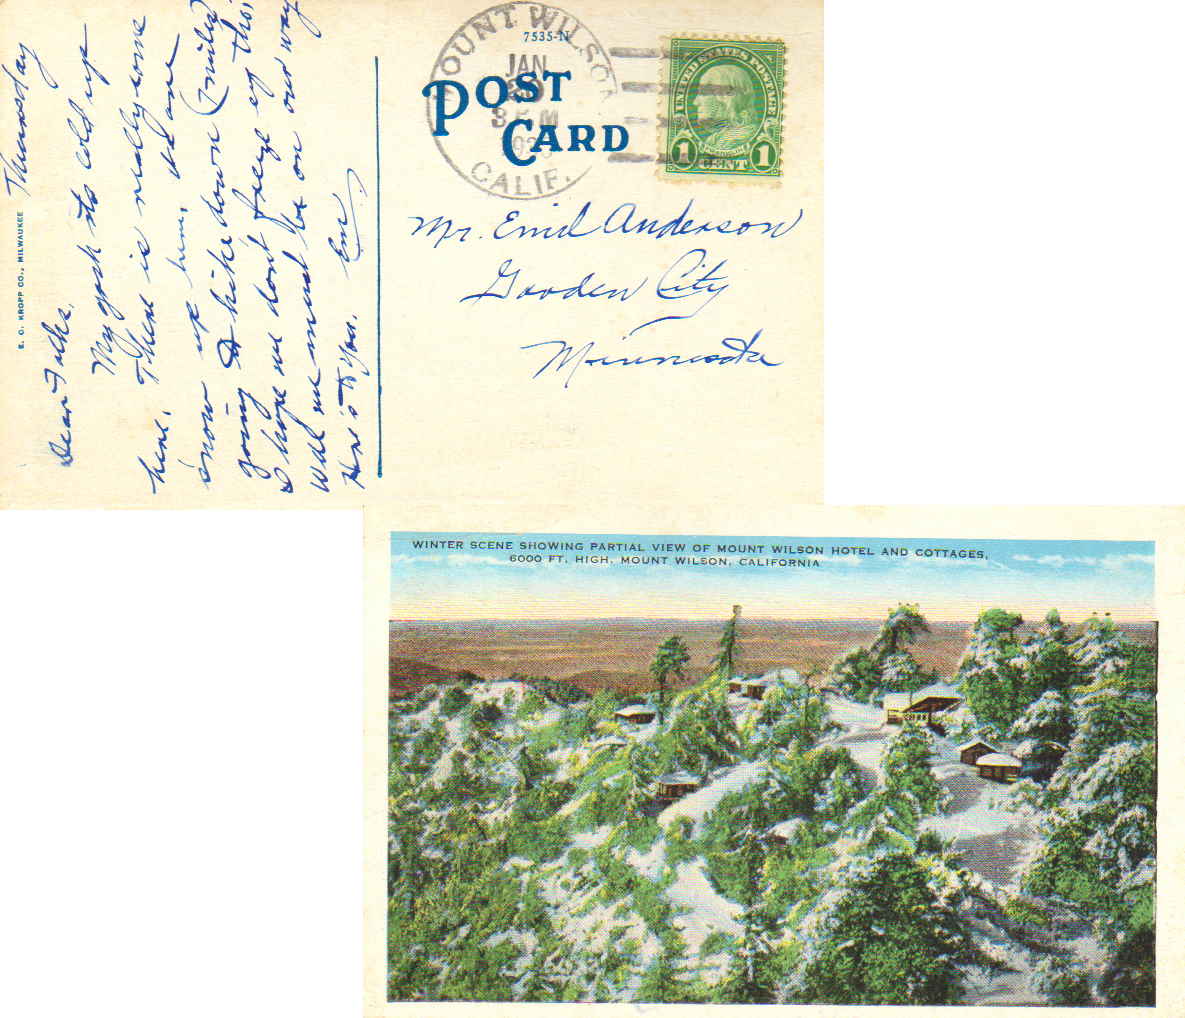 Thursday
Dear Folks.
My gosh its cold up
here. There is really some
snow up here. We are
going to hike down (7 miles
I hope we dont freeze
Well we must be on our way
Here's to you. Em.
E. C. KROPP CO., MILWAUKEE
7535-N
POST
CARD
MOUNT WILSON
JAN
20
CALIF.
UNITED STATES POSTAGE
1 CENT 1
Mr. Emil Anderson
Garden City
Minnesota
WINTER SCENE SHOWING PARTIAL VIEW OF MOUNT WILSON HOTEL AND COTTAGES,
6000 FT. HIGH, MOUNT WILSON, CALIFORNIA